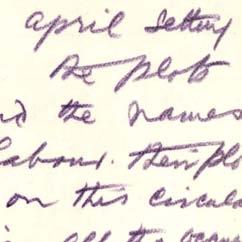 april setting
the plots
nd the names
labour. their plo
on this circula
all the